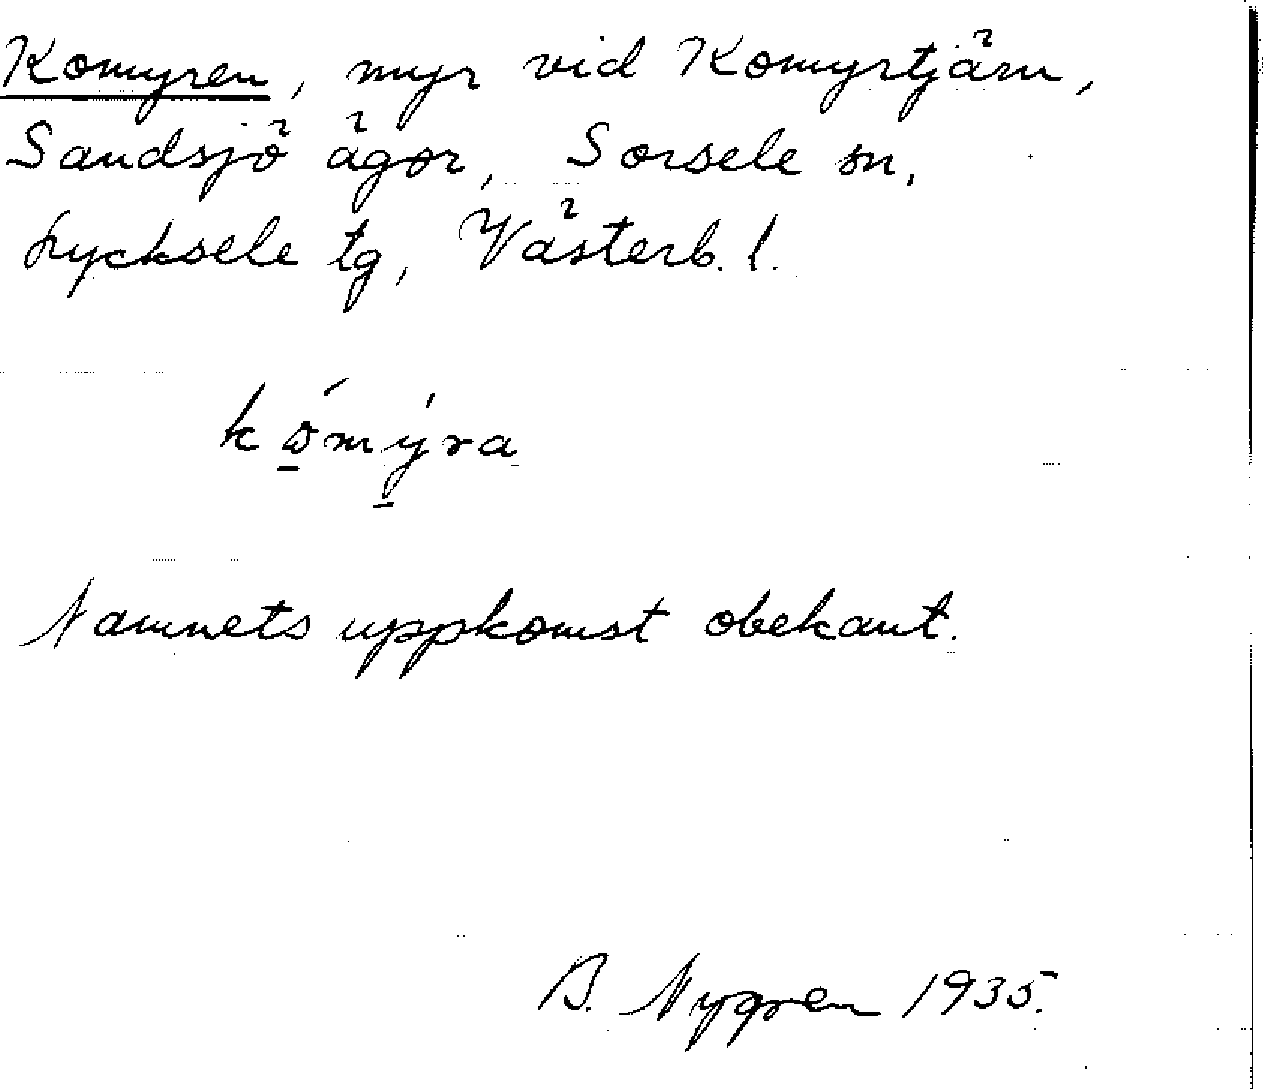 Komyren, myr vid Komyrtjärn,
Sandsjö ägor, Sorsele sn,
Lycksele tg, Västerb. l.
kómýra
Namnets uppkomst obekant.
B. Nygren 1935.